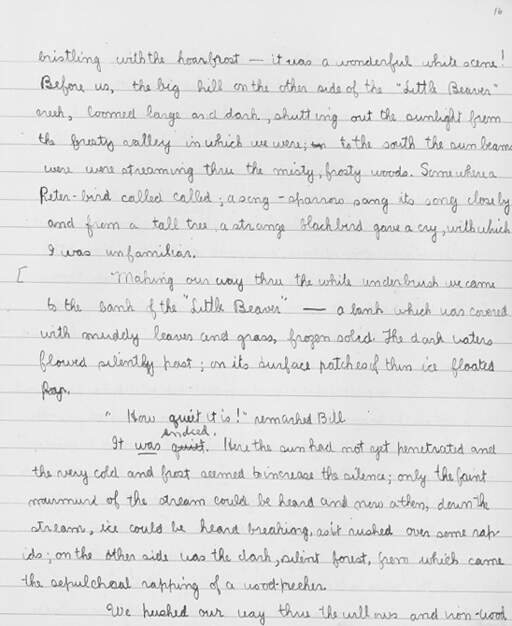 16
bristling with the hoarfrost — it was a wonderful white scene!
Before us, the big hill on the other side of the "Little Beaver"
creek, loomed large and dark, shutting out the sunlight from
the frosty valley in which we were; to the south the sun beams
were were streaming thru the misty, frosty woods. Somewhere a
Peter-bird called called; a song-sparrow sang its song close by
and from a tall tree, a strange blackbird gave a cry, with which
I was unfamiliar.
[ Making our way thru the white underbrush we came
to the bank of the "Little Beaver" — a bank which was covered
with muddy leaves and grass, frozen solid. The dark waters
flowed silently past; on its surface patches of thin ice floated
"How quiet it is!" remarked Bill
indeed.
It was quiet. Here the sun had not yet penetrated and
the very cold and frost seemed to increase the silence; only the faint
murmurd of the stream could be heard and now a then, down the
stream, ice could be heard breaking, as it rushed over some rap-
ids; on the other side was the dark, silent forest, from which came
the sepulchoral rapping of a wood-pecker.
We pushed our way thru the willows and iron-wood